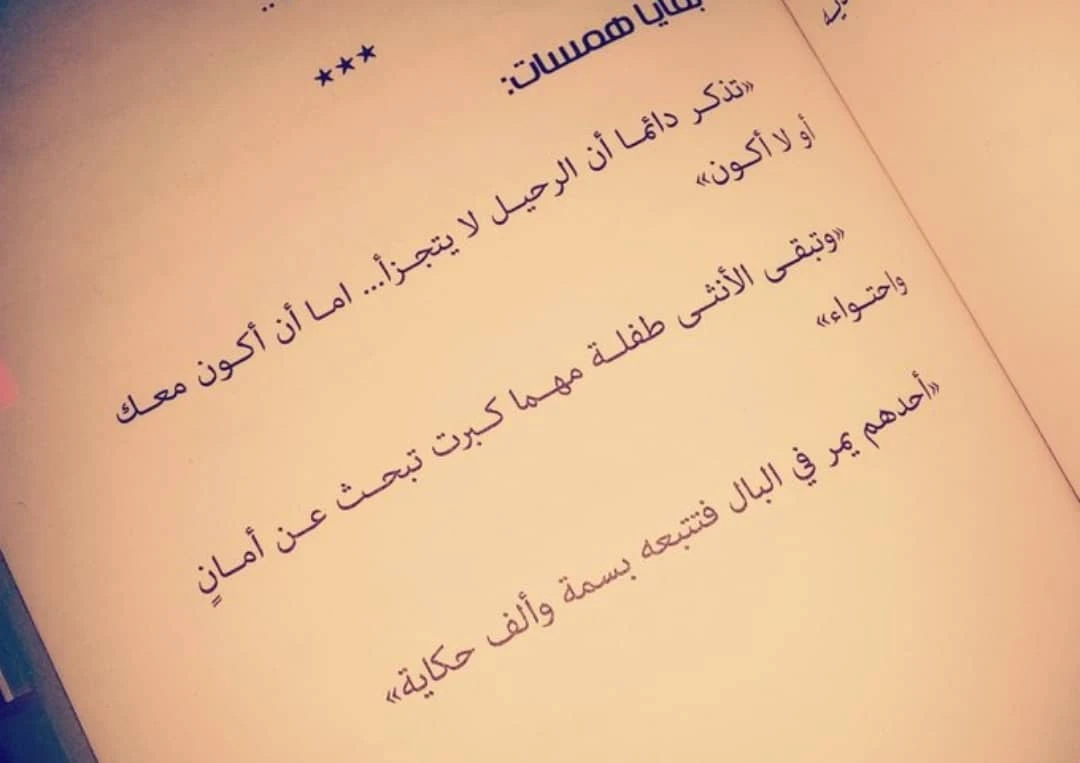 ***
بقايا همسات:
«تذكر دائما أن الرحيل لا يتجزأ... اما أن أكون معك
أو لا أكون»
«وتبقى الأنثى طفلة مهما كبرت تبحث عن أمانٍ
واحتواء»
«أحدهم يمر في البال فتتبعه بسمة وألف حكاية»